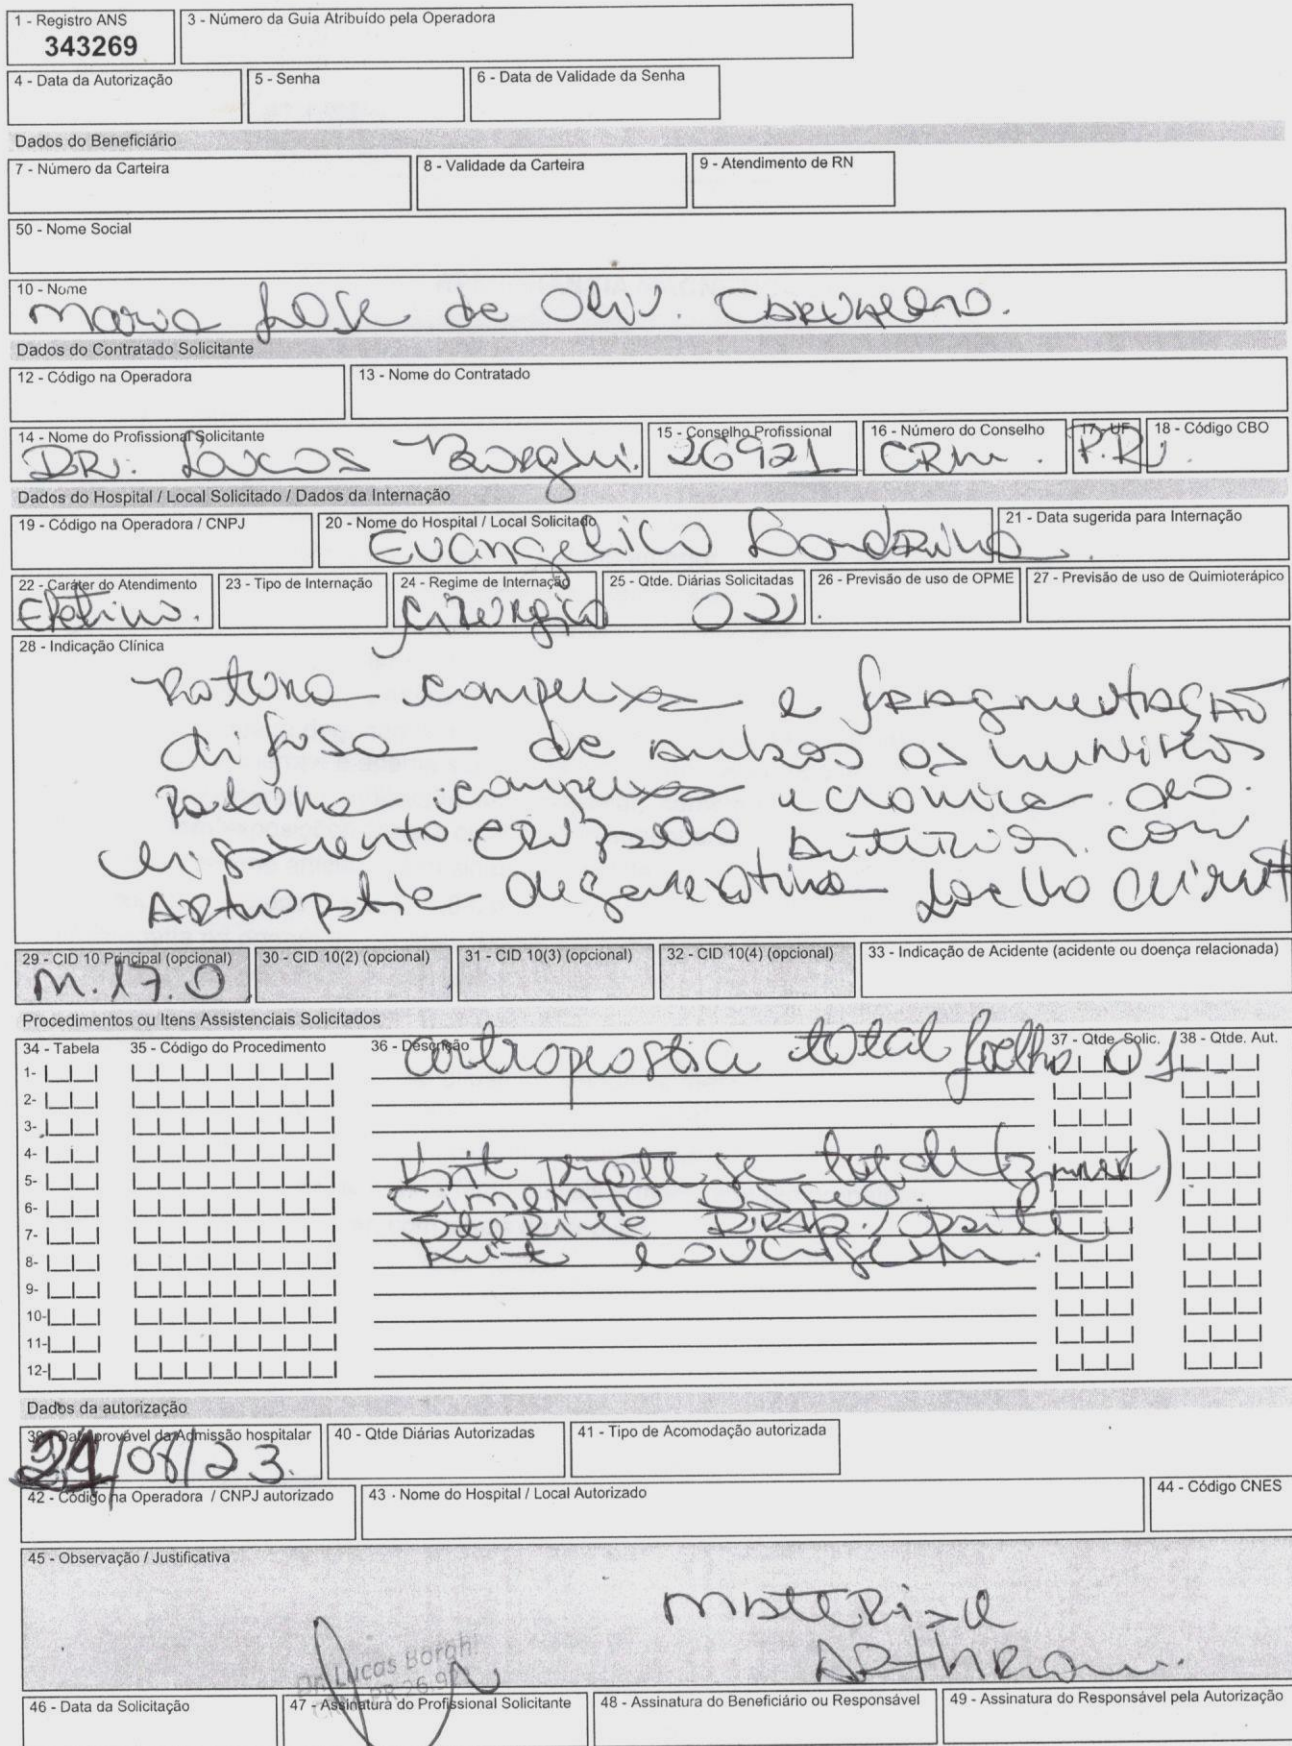 1 - Registro ANS
343269
3 - Número da Guia Atribuído pela Operadora
4 - Data da Autorização
5 - Senha
6 - Data de Validade da Senha
Dados do Beneficiário
7 - Número da Carteira
8 - Validade da Carteira
9 - Atendimento de RN
50 - Nome Social
10 - Nome
Maria José de Oliv. Carvalho.
Dados do Contratado Solicitante
12 - Código na Operadora
13 - Nome do Contratado
14 - Nome do Profissional Solicitante
DR. Lucas Borghi.
15 - Conselho Profissional
26921
16 - Número do Conselho
CRM.
17 - UF
PR
18 - Código CBO
Dados do Hospital / Local Solicitado / Dados da Internação
19 - Código na Operadora / CNPJ
20 - Nome do Hospital / Local Solicitado
Evangelico Londrina.
21 - Data sugerida para Internação
22 - Caráter do Atendimento
Eletivo.
23 - Tipo de Internação
24 - Regime de Internação
Cirurgico
25 - Qtde. Diárias Solicitadas
26 - Previsão de uso de OPME
27 - Previsão de uso de Quimioterápico
28 - Indicação Clínica
Rotura complexa e fragmentação
difusa de ambos os meniscos
Rotura complexa e cronica do
ligamento cruzado anterior com
Artropatia degenerativa joelho direito
29 - CID 10 Principal (opcional)
M.17.0
30 - CID 10(2) (opcional)
31 - CID 10(3) (opcional)
32 - CID 10(4) (opcional)
33 - Indicação de Acidente (acidente ou doença relacionada)
Procedimentos ou Itens Assistenciais Solicitados
34 - Tabela
35 - Código do Procedimento
36 - Descrição
37 - Qtde. Solic.
38 - Qtde. Aut.
1- artroplastia total joelho 01
2-
3-
4-
5- Kit protese total (zimmer)
6- Cimento osseo.
7- Sterile Drap/opsite
8- Kit lavagem.
9-
10-
11-
12-
Dados da autorização
39 - Data provável da Admissão hospitalar
/08/23.
40 - Qtde Diárias Autorizadas
41 - Tipo de Acomodação autorizada
42 - Código na Operadora / CNPJ autorizado
43 - Nome do Hospital / Local Autorizado
44 - Código CNES
45 - Observação / Justificativa
Material
Arthrom.
Dr. Lucas Borghi
46 - Data da Solicitação
47 - Assinatura do Profissional Solicitante
48 - Assinatura do Beneficiário ou Responsável
49 - Assinatura do Responsável pela Autorização